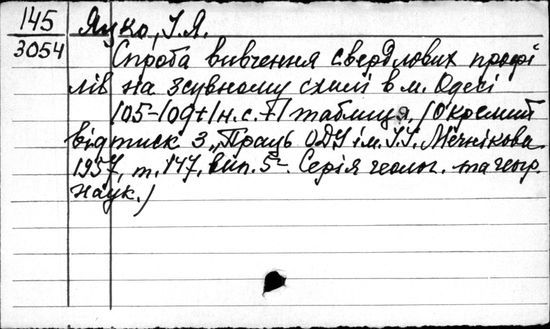 145
3054
Яцко, І.Я.
Спроба вивчення свердлових профі
лів на зсувному схилі в м. Одесі
105-109+1н.с.+1 таблиця. /Окремий
відтиск з „Праць ОДУ ім. І.І. Мечнікова
1957, т. 147, вип. 5- Серія геолог. та геогр.
наук./